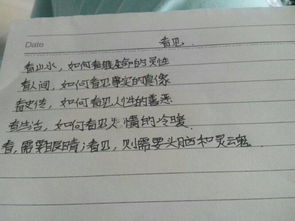 Date
看见
看山水，如何看雄奇的灵性
看人间，如何看见事实的真像
看史传，如何看见人性的善恶
看生活，如何看见人情的冷暖
看，需要眼睛；看见，则需要头脑和灵云魂